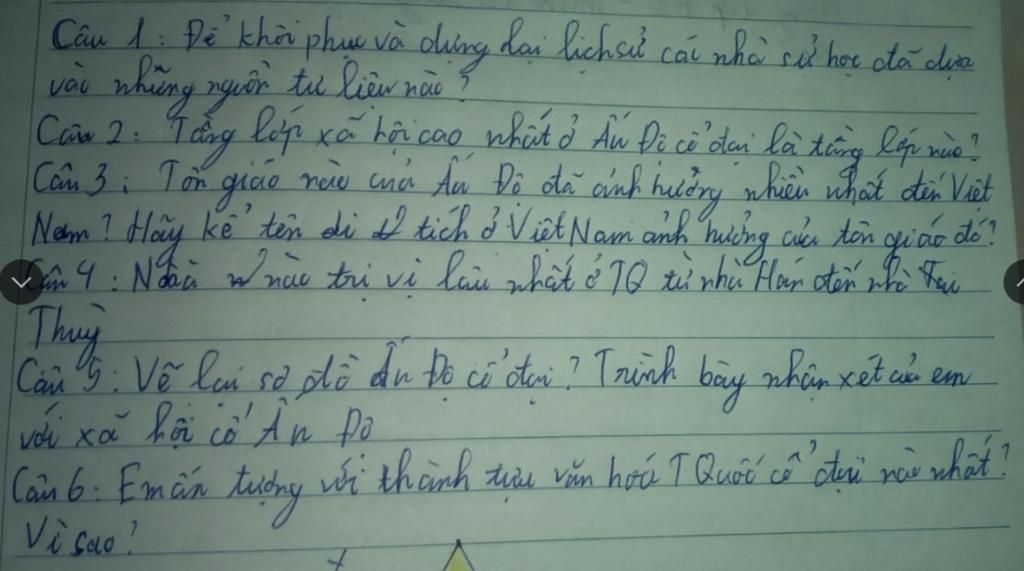 Câu 1: Để khôi phục và dựng lại lịch sử các nhà sử học đã dựa
vào những nguồn tư liệu nào?
Câu 2: Tầng lớp xã hội cao nhất ở Ấn Độ cổ đại là tầng lớp nào?
Câu 3: Tôn giáo nào của Ấn Độ đã ảnh hưởng nhiều nhất đến Việt
Nam? Hãy kể tên di tích ở Việt Nam ảnh hưởng của tôn giáo đó?
Câu 4: Nhà nào trị vì lâu nhất ở TQ từ nhà Hán đến nhà
Thuỳ
Câu 5: Vẽ lại sơ đồ Ấn Độ cổ đại? Trình bày nhận xét của em
với xã hội cổ Ấn Độ
Câu 6: Em ấn tượng với thành tựu văn hoá TQuốc cổ đại nào nhất?
Vì sao?